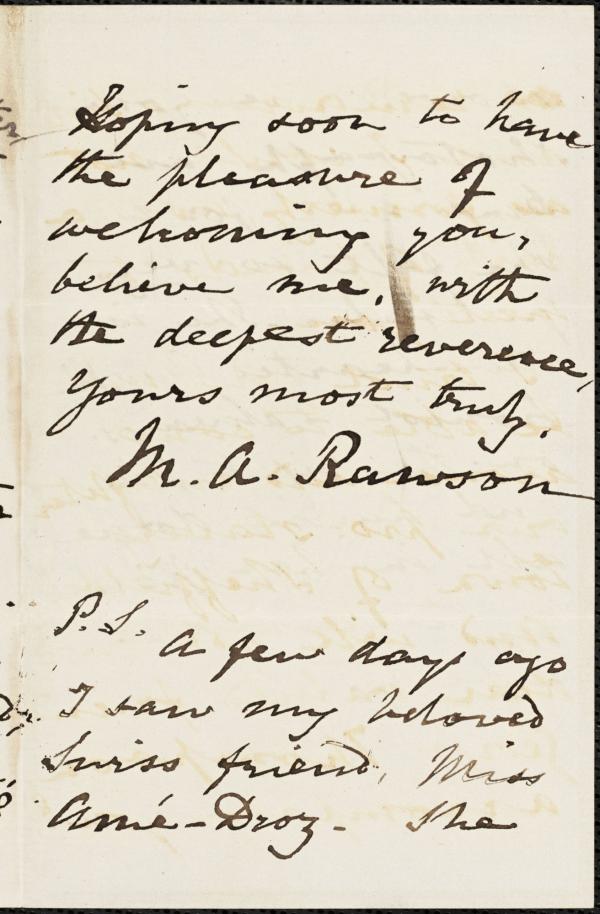 Hoping soon to have
the pleasure of
welcoming you,
believe me, with
the deepest reverence,
Yours most truly,
M. A. Rawson
P.S. A few days ago
I saw my beloved
Swiss friend, Miss
Amé-Droz. She